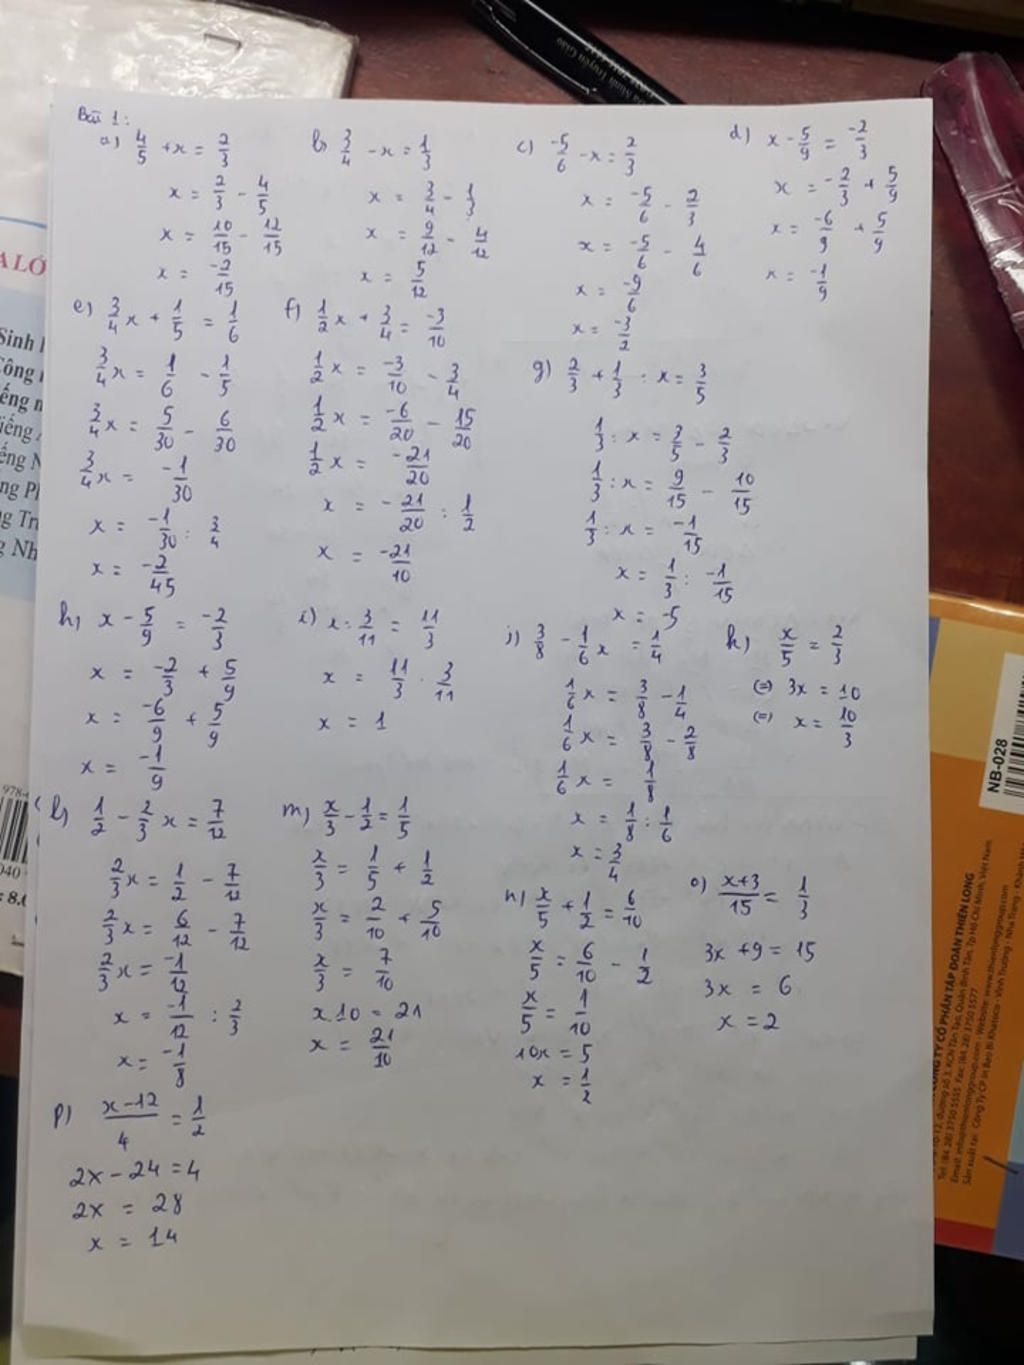 Bài 1:
a) 4/5 + x = 2/3
x = 2/3 - 4/5
x = 10/15 - 12/15
x = -2/15
b) 3/4 - x = 1/3
x = 3/4 - 1/3
x = 9/12 - 4/12
x = 5/12
c) -5/6 - x = 2/3
x = -5/6 - 2/3
x = -5/6 - 4/6
x = -9/6
x = -3/2
d) x - 5/9 = -2/3
x = -2/3 + 5/9
x = -6/9 + 5/9
x = -1/9
e) 3/4 x + 1/5 = 1/6
3/4 x = 1/6 - 1/5
3/4 x = 5/30 - 6/30
3/4 x = -1/30
x = -1/30 : 3/4
x = -2/45
f) 1/2 x + 3/4 = -3/10
1/2 x = -3/10 - 3/4
1/2 x = -6/20 - 15/20
1/2 x = -21/20
x = -21/20 : 1/2
x = -21/10
g) 2/3 + 1/3 : x = 3/5
1/3 : x = 3/5 - 2/3
1/3 : x = 9/15 - 10/15
1/3 : x = -1/15
x = 1/3 : -1/15
x = -5
h) x - 5/9 = -2/3
x = -2/3 + 5/9
x = -6/9 + 5/9
x = -1/9
i) x : 3/11 = 11/3
x = 11/3 . 3/11
x = 1
j) 3/8 - 1/6 x = 1/4
1/6 x = 3/8 - 1/4
1/6 x = 3/8 - 2/8
1/6 x = 1/8
x = 1/8 : 1/6
x = 3/4
k) x/5 = 2/3
(=) 3x = 10
(=) x = 10/3
l) 1/2 - 2/3 x = 7/12
2/3 x = 1/2 - 7/12
2/3 x = 6/12 - 7/12
2/3 x = -1/12
x = -1/12 : 2/3
x = -1/8
m) x/3 - 1/2 = 1/5
x/3 = 1/5 + 1/2
x/3 = 2/10 + 5/10
x/3 = 7/10
x.10 = 21
x = 21/10
n) x/5 + 1/2 = 6/10
x/5 = 6/10 - 1/2
x/5 = 1/10
10x = 5
x = 1/2
o) x+3/15 = 1/3
3x + 9 = 15
3x = 6
x = 2
p) x-12/4 = 1/2
2x - 24 = 4
2x = 28
x = 14
NB-028
CÔNG TY CỔ PHẦN TẬP ĐOÀN THIÊN LONG